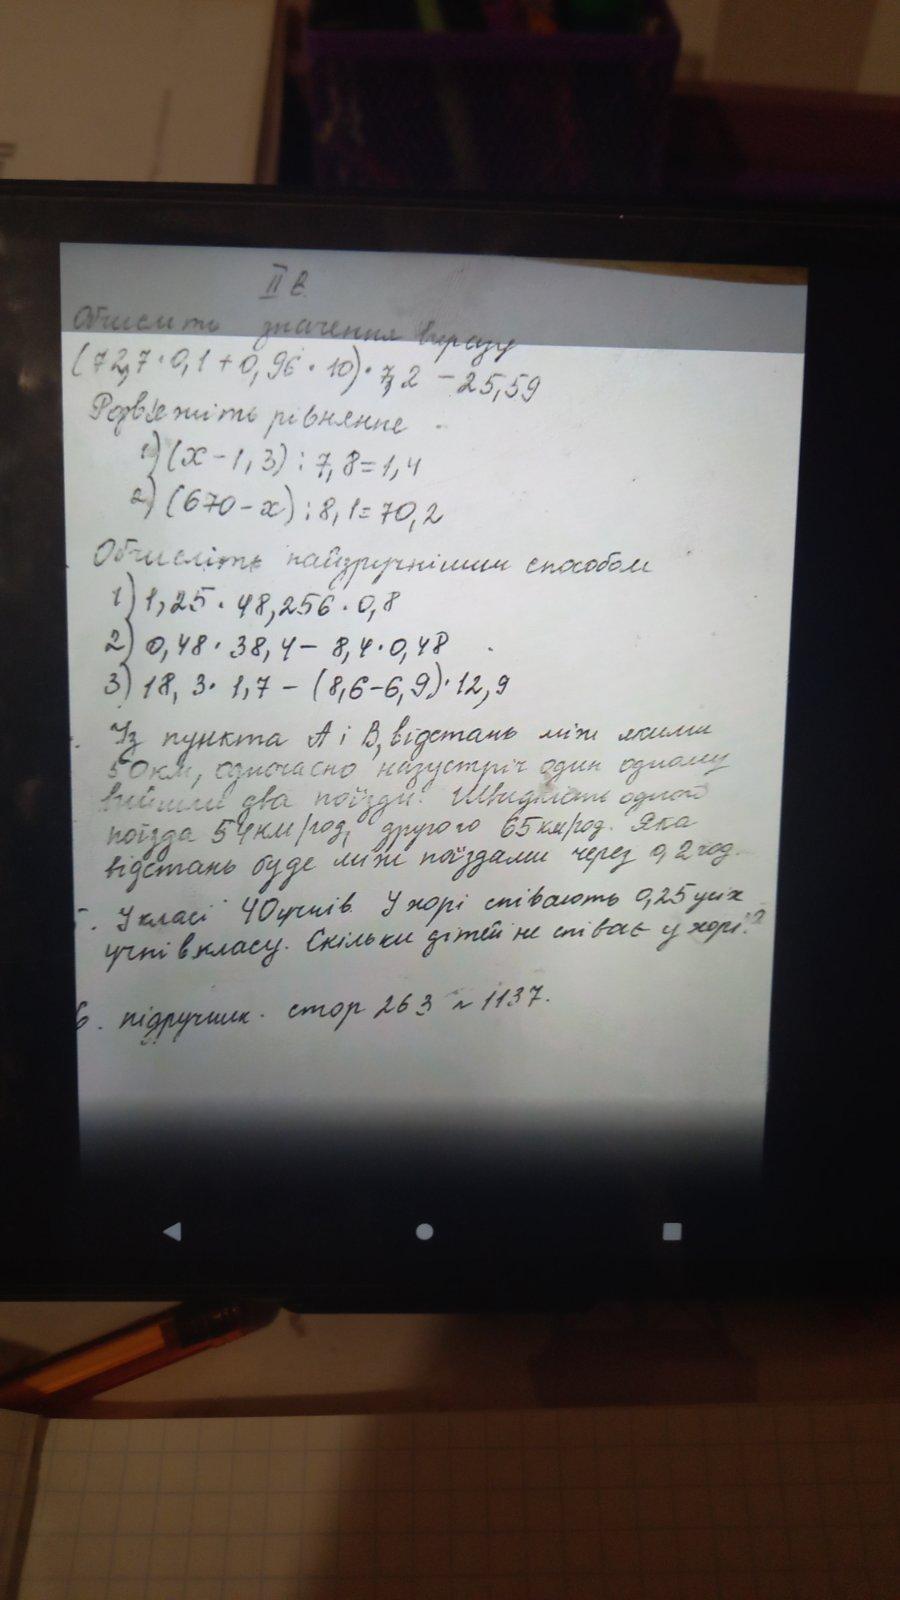 II в.
Обчисліть значення виразу
(72,7 · 0,1 + 0,96 · 10) · 7,2 - 25,59
Розв'яжіть рівняння
1) (x - 1,3) : 7,8 = 1,4
2) (670 - x) : 8,1 = 70,2
Обчисліть найзручнішим способом
1) 1,25 · 48,256 · 0,8
2) 0,48 · 38,4 - 8,4 · 0,48
3) 18,3 · 1,7 - (8,6 - 6,9) · 12,9
Із пункта А і В, відстань між якими
50км, одночасно назустріч один одному
вийшли два поїзди. Швидкість одного
поїзда 54км/год, другого 65км/год. Яка
відстань буде між поїздами через 0,2год.
5. У класі 40учнів. У хорі співають 0,25 усіх
учнів класу. Скільки дітей не співає у хорі?
6. підручник. стор 263 ~ 1137.